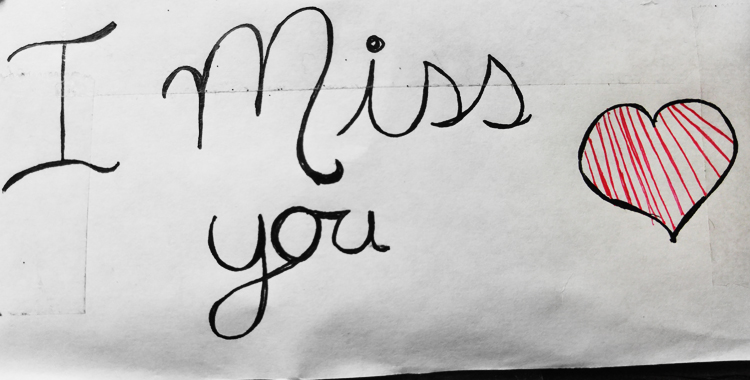 I Miss
you